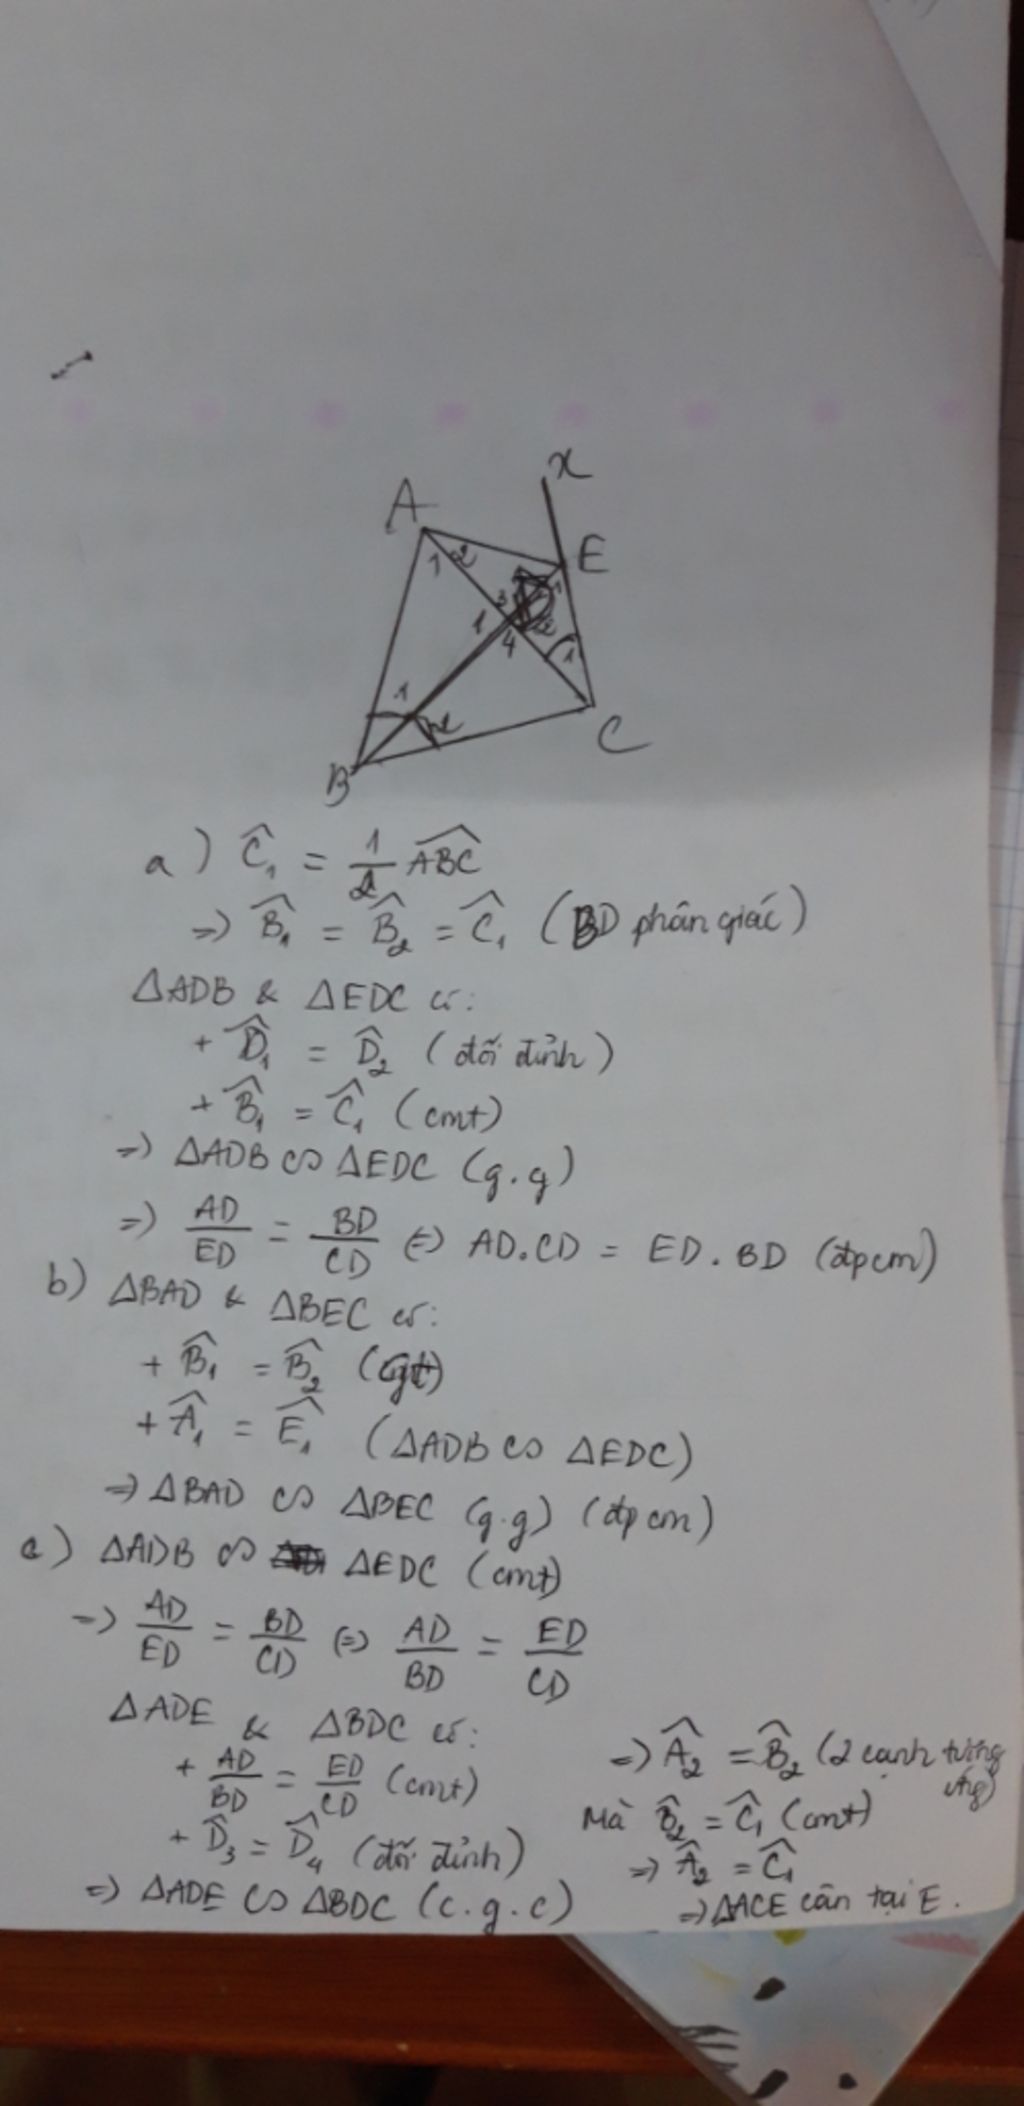 x
A
E
1 2
3 1
1 2
4
1
1
2
C
B
a) Ĉ₁ = 1/2 ABC^
=> B̂₁ = B̂₂ = Ĉ₁ (BD phân giác)
ΔADB & ΔEDC có:
+ D̂₁ = D̂₂ (đối đỉnh)
+ B̂₁ = Ĉ₁ (cmt)
=> ΔADB ∽ ΔEDC (g.g)
=> AD/ED = BD/CD <=> AD.CD = ED.BD (đpcm)
b) ΔBAD & ΔBEC có:
+ B̂₁ = B̂₂ (gt)
+ Â₁ = Ê₁ (ΔADB ∽ ΔEDC)
=> ΔBAD ∽ ΔBEC (g.g) (đpcm)
c) ΔADB ∽ ΔEDC (cmt)
=> AD/ED = BD/CD <=> AD/BD = ED/CD
ΔADE & ΔBDC có:
+ AD/BD = ED/CD (cmt)
+ D̂₃ = D̂₄ (đối đỉnh)
=> ΔADE ∽ ΔBDC (c.g.c)
=> Â₂ = B̂₂ (2 cạnh tương
ứng)
Mà B̂₂ = Ĉ₁ (cmt)
=> Â₂ = Ĉ₁
=> ΔACE cân tại E.